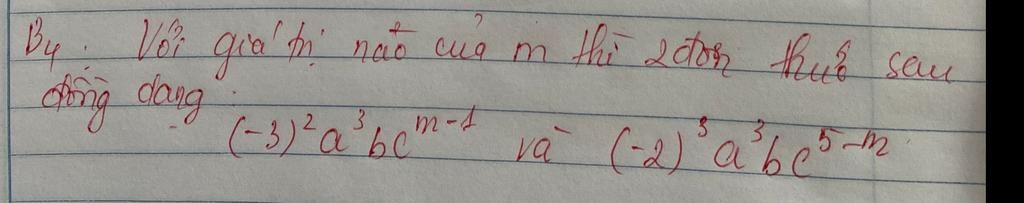 B4. Với giá trị nào của m thì 2 đơn thức sau
đồng dạng.
(-3)² a³ b c^{m-1} và (-2)³ a³ b c^{5-m}